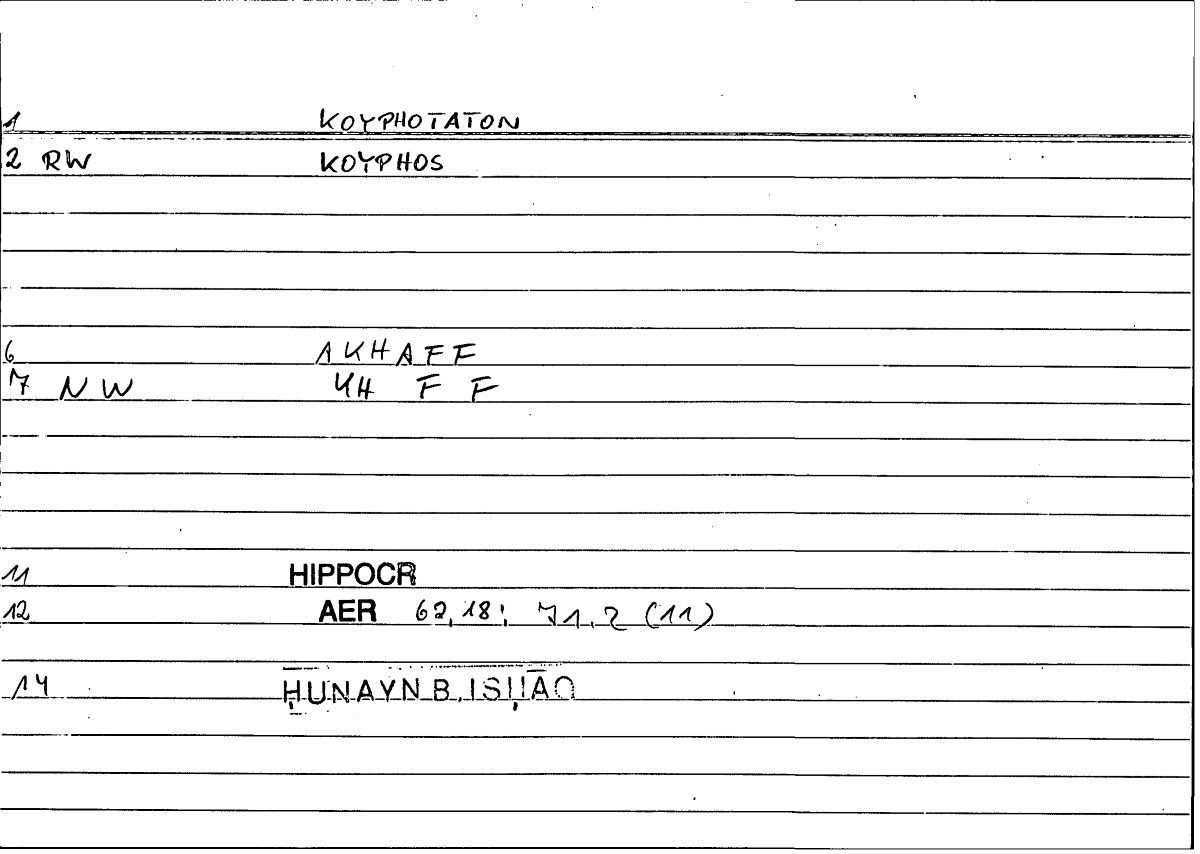 1 KOYPHOTATON
2 RW KOYPHOS
6 AKHAFF
7 NW KH F F
11 HIPPOCR
12 AER 62,18; 71,2 (11)
14 ḤUNAYN B. ISḤĀQ